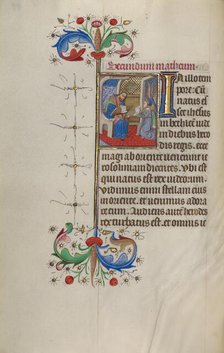 Secundum matheum
In illo tem
pore Cu
natus es
set ihesus
in bethleem iude
in diebus hero
dis regis. ecce
magi ab oriente uenerunt ie
rosolimam dicentes. Ubi est
qui natus est rex iudeorum.
Vidimus enim stellam eius
in oriente. et uenimus adora
re eum. Audiens autē herodes
rex turbatus est. et omnis ie